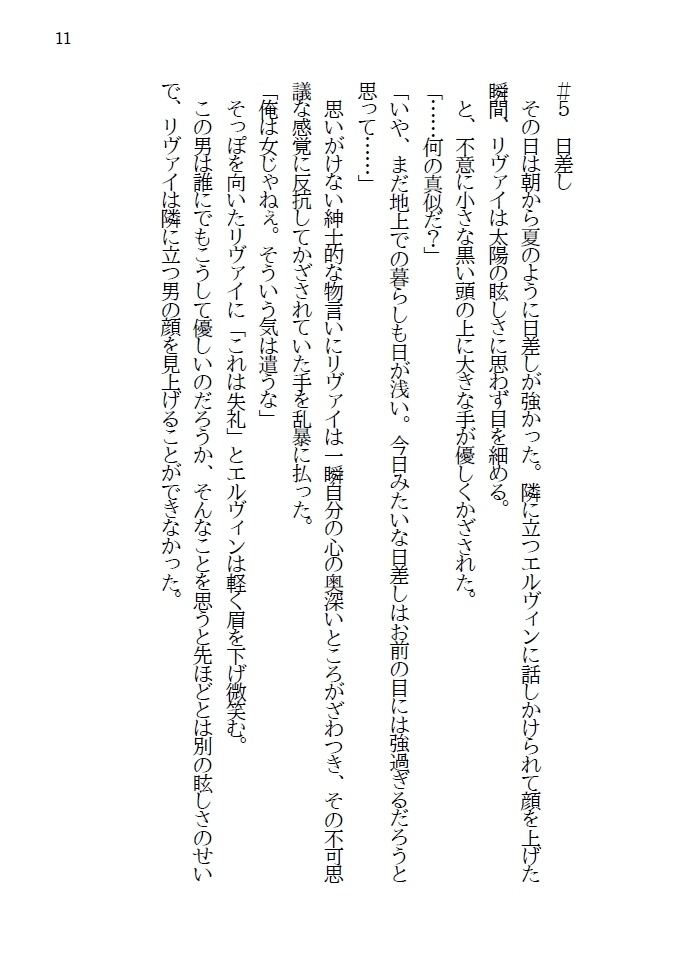 11
#5　日差し
　その日は朝から夏のように日差しが強かった。隣に立つエルヴィンに話しかけられて顔を上げた
瞬間、リヴァイは太陽の眩しさに思わず目を細める。
　と、不意に小さな黒い頭の上に大きな手が優しくかざされた。
「……何の真似だ？」
「いや、まだ地上での暮らしも日が浅い。今日みたいな日差しはお前の目には強過ぎるだろうと
思って……」
　思いがけない紳士的な物言いにリヴァイは一瞬自分の心の奥深いところがざわつき、その不可思
議な感覚に反抗してかざされていた手を乱暴に払った。
「俺は女じゃねぇ。そういう気は遣うな」
　そっぽを向いたリヴァイに「これは失礼」とエルヴィンは軽く眉を下げ微笑む。
　この男は誰にでもこうして優しいのだろうか、そんなことを思うと先ほどとは別の眩しさのせい
で、リヴァイは隣に立つ男の顔を見上げることができなかった。